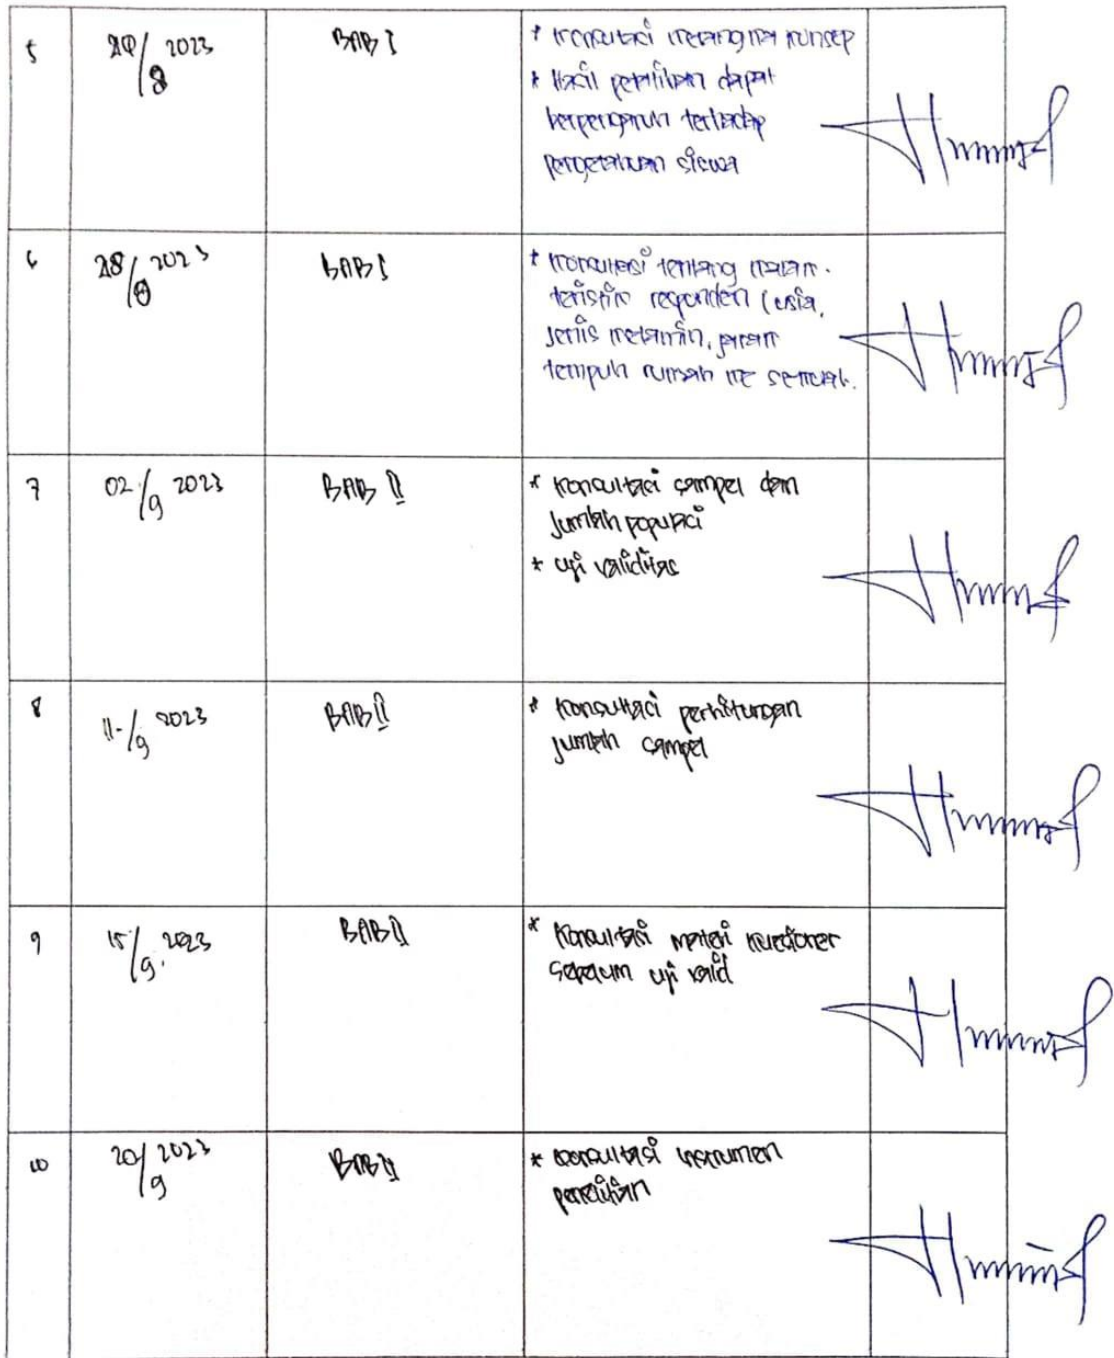 5
20/8 2023
BAB I
* Konsultasi kerangka konsep
* Hasil penelitian dapat
berpengaruh terhadap
pengetahuan siswa
6
28/8 2023
BAB I
* Konsultasi tentang karak-
teristik responden (usia,
jenis kelamin, jarak
tempuh rumah ke sekolah.
7
02/9 2023
BAB II
* Konsultasi sampel dan
jumlah populasi
* uji validitas
8
11-/9 2023
BAB II
* Konsultasi perhitungan
jumlah sampel
9
15/9. 2023
BAB II
* Konsultasi materi kuesioner
sebelum uji valid
10
20/9 2023
BAB II
* Konsultasi instrumen
penelitian